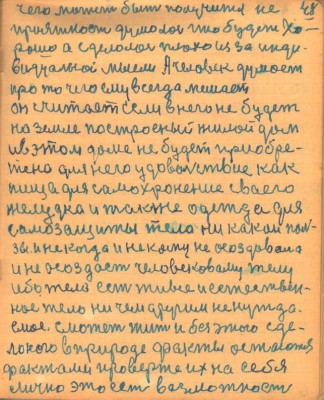 48
чего может быт получится не
приятност думолос што будет хо-
рошо а сделолос плохо из за инди-
видуалной мысли А человек думает
про то что ему всегда мешает
он считает если в него не будет
на земле построеный жилой дом
и в этом доме не будет приобре-
тено для него удовольствие как
пища для само хронение своего
желудка и также одежда для
самозащиты тела ни какой пол-
зы и некогда и некому не создовала
и не создаст человековому телу
ибо тело ест живое и естествен-
ное тело ни чем другим не нужда
емое. сможет жит и без этого сде-
лоного в природе факты остаются
фактами проверте их на себя
лично это ест возможност